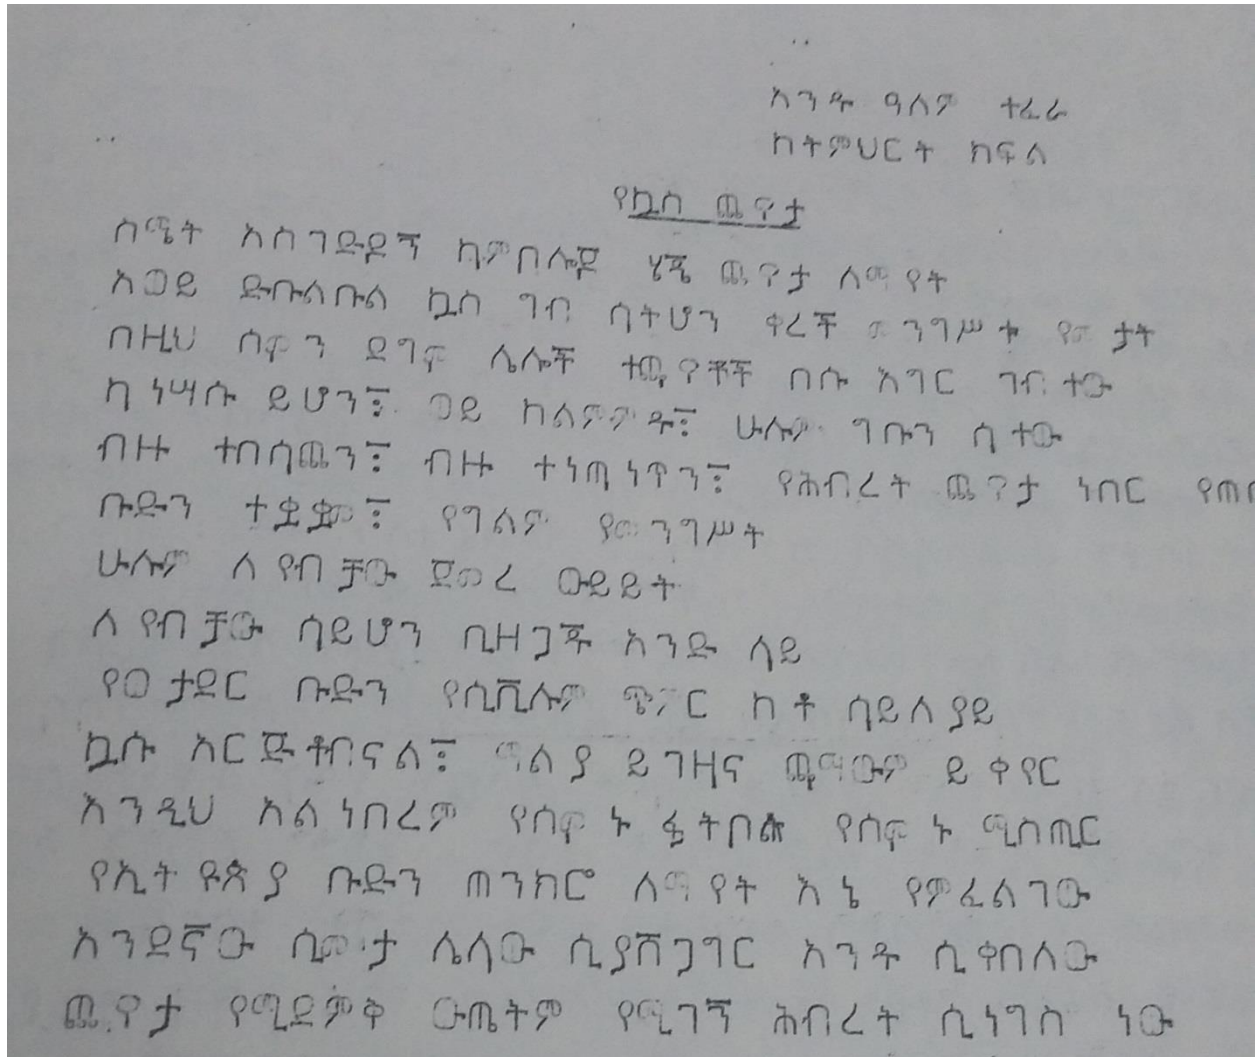 አንዱ ዓለም ተፈራ
ከትምህርት ክፍል
የኳስ ጨዋታ
ስሜት አስገድዶኝ ካምቦሎጆ ሄጄ ጨዋታ ለማየት
አወይ ድቡልቡል ኳስ ግብ ሳትሆን ቀረች መንግሥቱ የመታት
በዚህ ሰፋን ደግፎ ሌሎች ተጫዋቾች በሱ እግር ገብተው
ካነሣሱ ይሆን፧ ወይ ከልምምዱ፧ ሁሉም ግቡን ስተው
ብዙ ተበሳጨን፧ ብዙ ተነጣነጥን፧ የሕብረት ጨዋታ ነበር
ቡድን ተቋቋመ፧ የግልም የመንግሥት
ሁሉም ለየብቻው ጀመረ ውይይት
ለየብቻው ሳይሆን ቢዘጋጁ አንድ ላይ
የወታደር ቡድን የሲቪሉም ጭምር ከቶ ሳይለያይ
ኳሱ አርጅቶብናል፧ ማልያ ይገዛና ጫማውም ይቀየር
እንዲህ አልነበረም የሰፋኑ ፉትቦል የሰፋኑ ሚስጢር
የኢትዮጵያ ቡድን ጠንክሮ ለማየት እኔ የምፈልገው
አንደኛው ሲመታ ሌላው ሲያሸጋግር አንዱ ሲቀበለው
ጨዋታ የሚደምቅ ውጤትም የሚገኝ ሕብረት ሲነግስ ነው